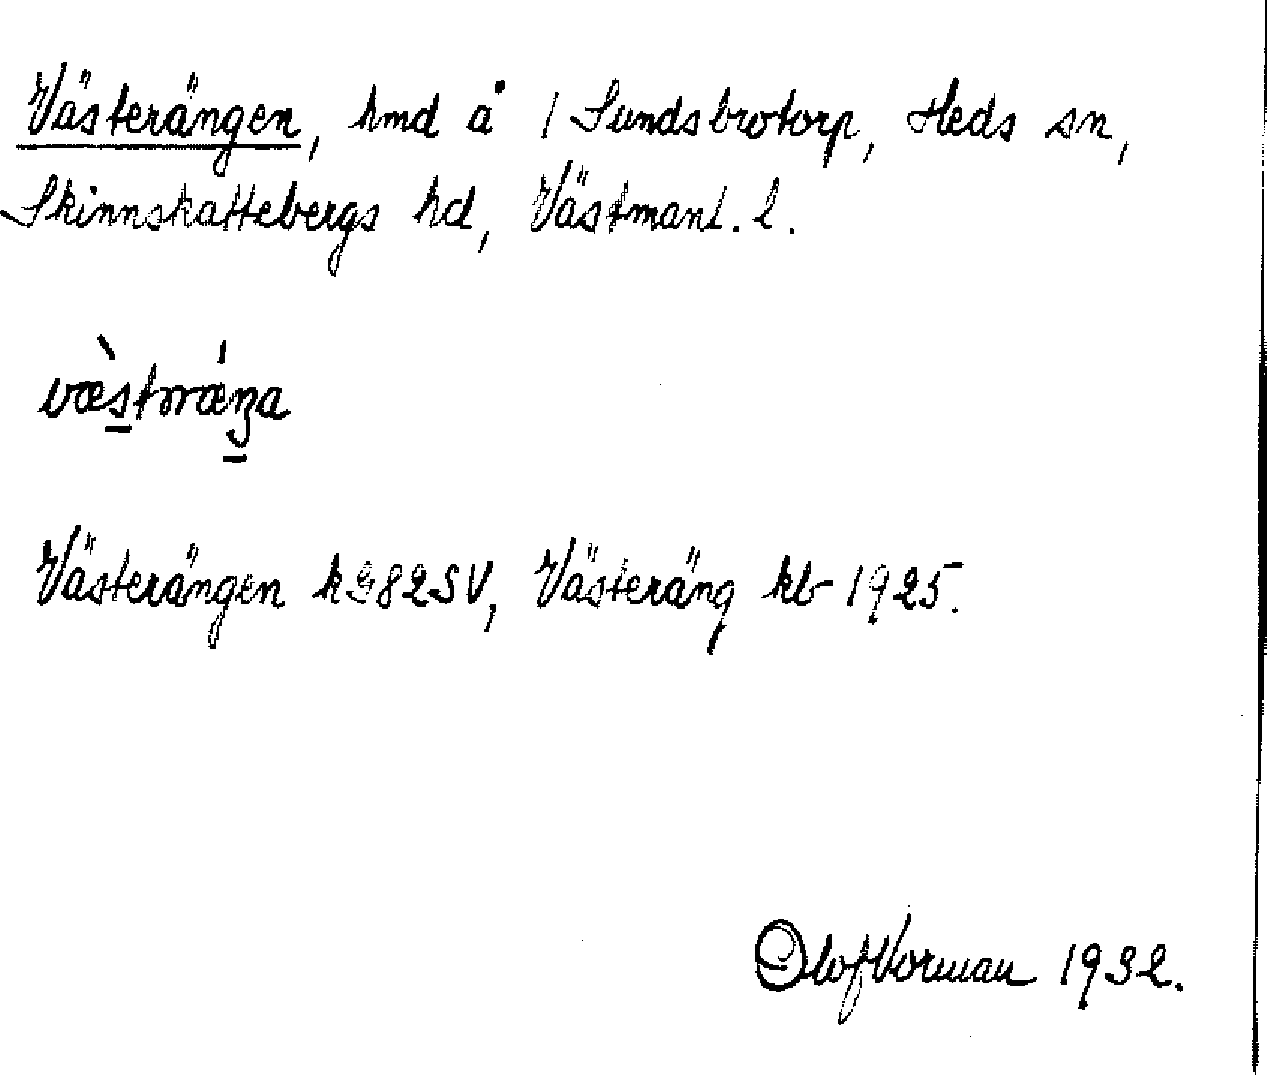 Västerängen, hmd å 1 Sundsbrotorp, Heds sn,
Skinnskattebergs hd, Västmanl. l.
Västerängen k 982SV, Västeräng kb 1925.
Olof Vorman 1932.